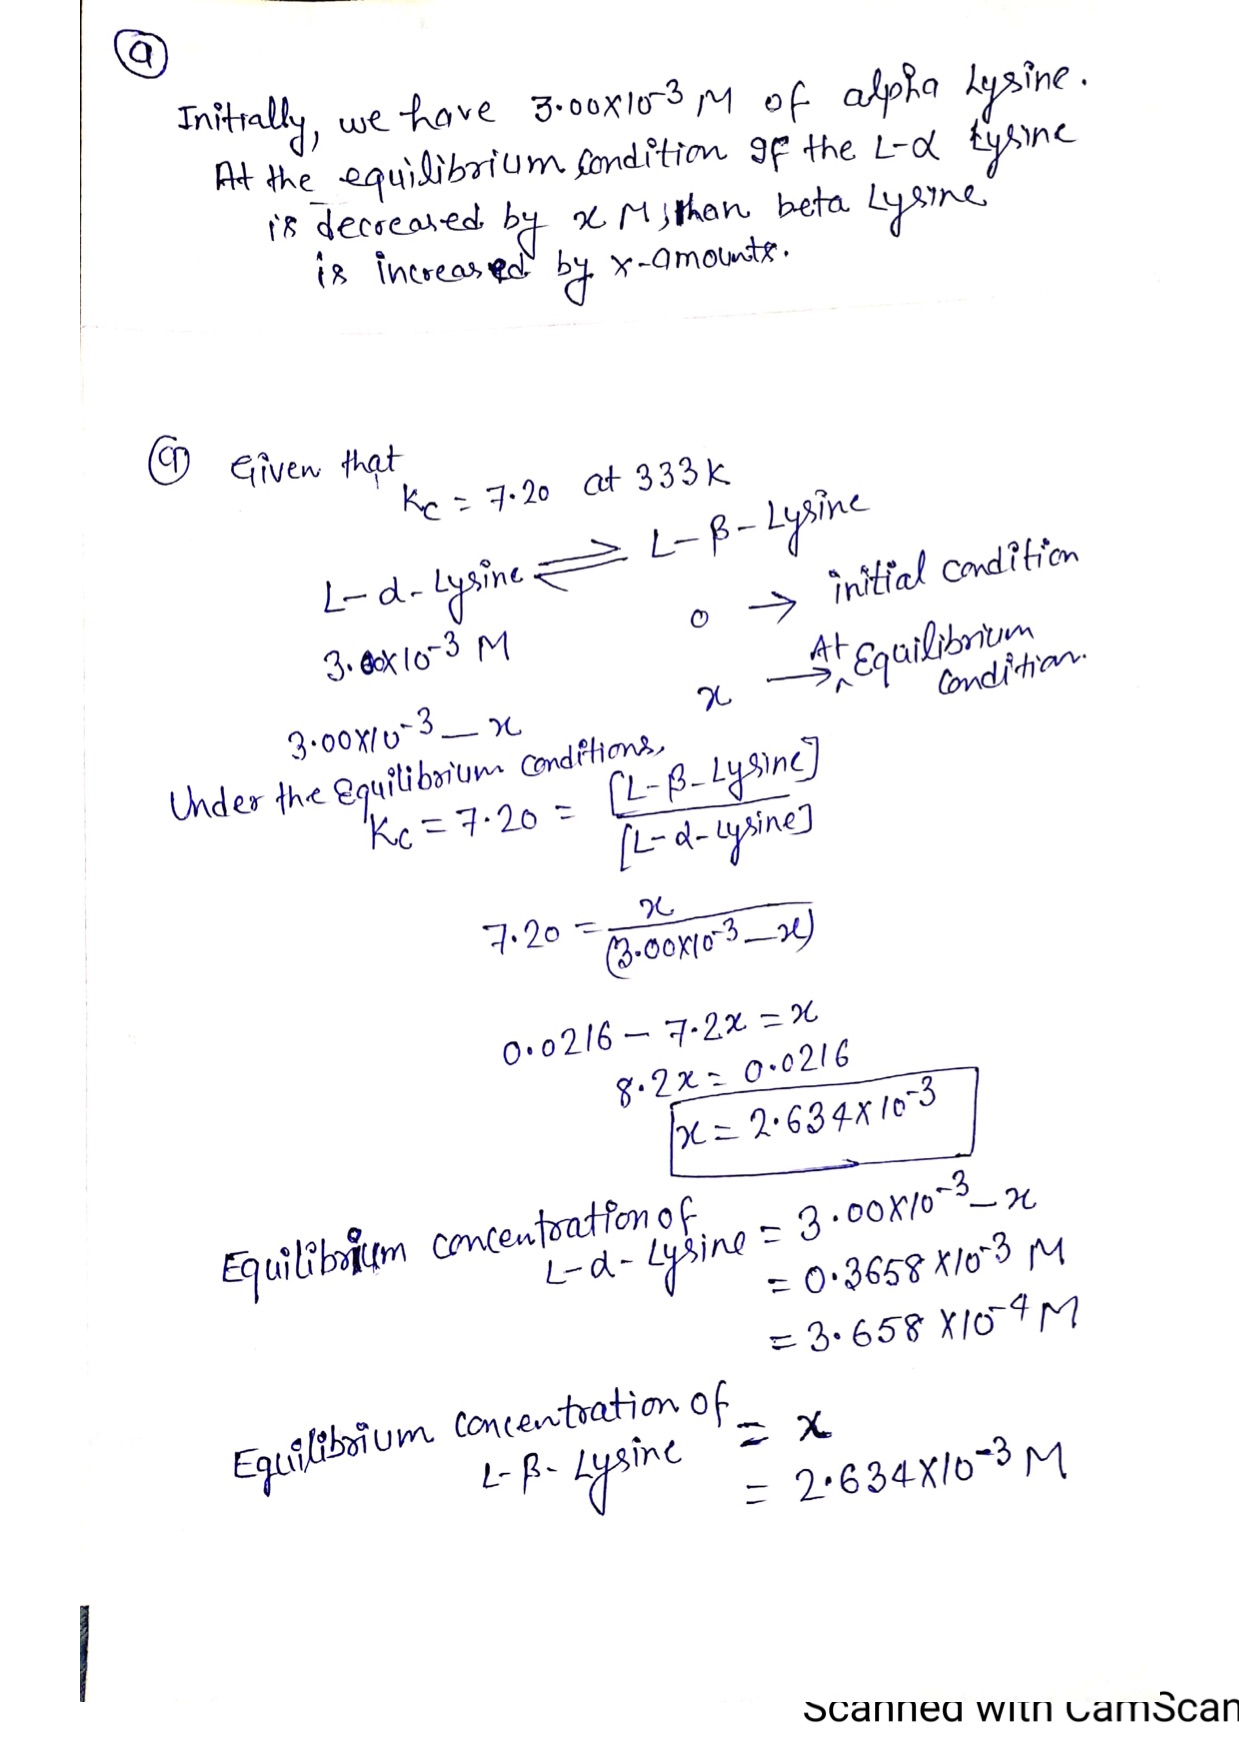 a
Initially, we have 3.00x10-3 M of alpha Lysine.
At the equilibrium condition If the L-α Lysine
is decreased by x M, than beta Lysine
is increased by x-amounts.
a Given that
Kc = 7.20 at 333K
L-α-Lysine ⇌ L-β-Lysine
3.00x10-3 M 0 → initial condition
3.00x10-3 - x x → At Equilibrium Condition.
Under the Equilibrium conditions,
Kc = 7.20 = [L-β-Lysine] / [L-α-Lysine]
7.20 = x / (3.00x10-3 - x)
0.0216 - 7.2x = x
8.2x = 0.0216
x = 2.634x10-3
Equilibrium concentration of L-α-Lysine = 3.00x10-3 - x
= 0.3658x10-3 M
= 3.658x10-4 M
Equilibrium concentration of L-β-Lysine = x
= 2.634x10-3 M
Scanned with CamScan